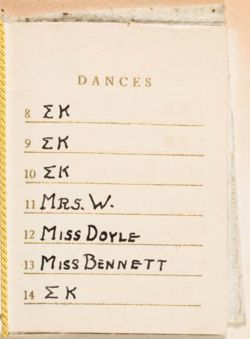 DANCES
8 ΣΚ
9 ΣΚ
10 ΣΚ
11 MRS. W.
12 MISS DOYLE
13 MISS BENNETT
14 Σ Κ